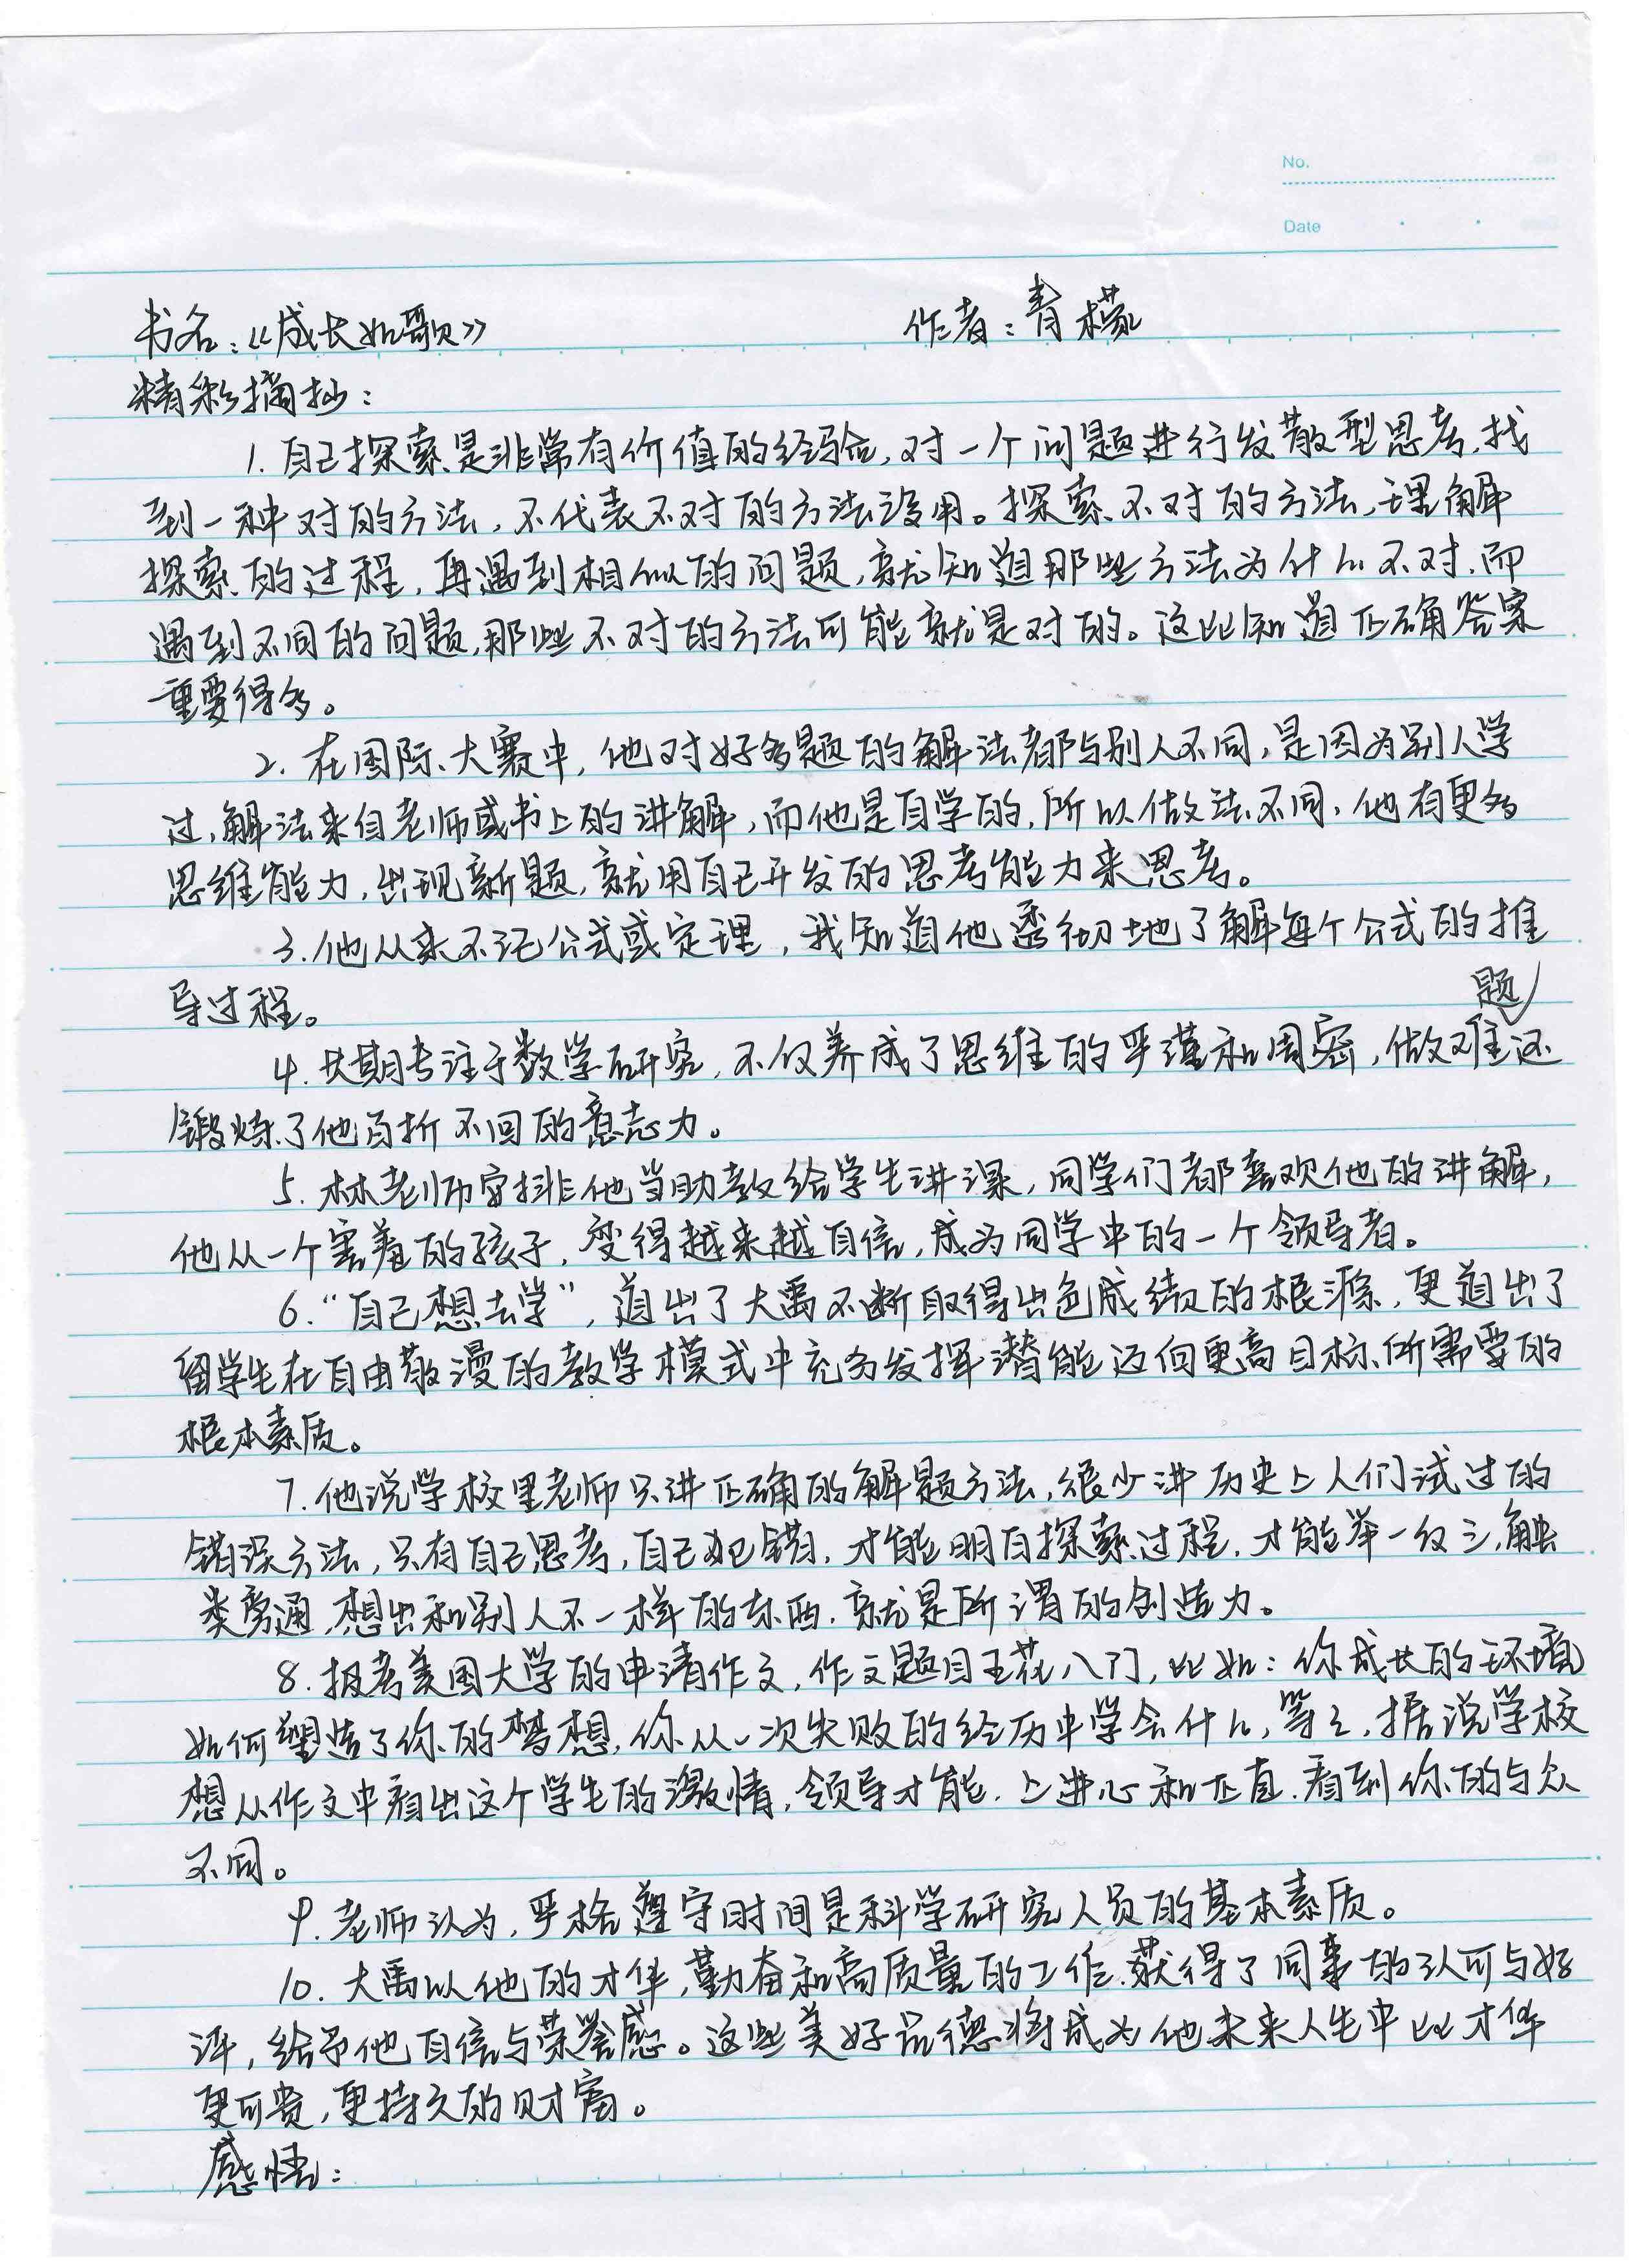 No.
Date
书名：《成长如歌》 作者：青檬
精彩摘抄：
1. 自己探索是非常有价值的经验，对一个问题进行发散型思考，找
到一种对的方法，不代表不对的方法没用。探索不对的方法，理解
探索的过程，再遇到相似的问题，就知道那些方法为什么不对，而
遇到不同的问题，那些不对的方法可能就是对的。这比知道正确答案
重要得多。
2. 在国际大赛中，他对好多题的解法都与别人不同，是因为别人学
过，解法来自老师或书上的讲解，而他是自学的，所以做法不同，他有更多
思维能力，出现新题，就用自己开发的思考能力来思考。
3. 他从来不记公式或定理，我知道他透彻地了解每个公式的推
导过程。
4. 长期专注于数学研究，不仅养成了思维的严谨和周密，做难题还
锻炼了他百折不回的意志力。
5. 林老师安排他当助教给学生讲课，同学们都喜欢他的讲解，
他从一个害羞的孩子，变得越来越自信，成为同学中的一个领导者。
6. “自己想去学”，道出了大禹不断取得出色成绩的根源，更道出了
留学生在自由散漫的教学模式中充分发挥潜能迈向更高目标所需要的
根本素质。
7. 他说学校里老师只讲正确的解题方法，很少讲历史上人们试过的
错误方法，只有自己思考，自己犯错，才能明白探索过程，才能举一反三，触
类旁通，想出和别人不一样的东西，就是所谓的创造力。
8. 报考美国大学的申请作文，作文题目五花八门，比如：你成长的环境
如何塑造了你的梦想，你从一次失败的经历中学会什么，等等，据说学校
想从作文中看出这个学生的激情，领导才能，上进心和正直，看到你的与众
不同。
9. 老师认为，严格遵守时间是科学研究人员的基本素质。
10. 大禹以他的才华，勤奋和高质量的工作，获得了同事的认可与好
评，给予他自信与荣誉感。这些美好品德将成为他未来人生中比才华
更可贵，更持久的财富。
感悟：